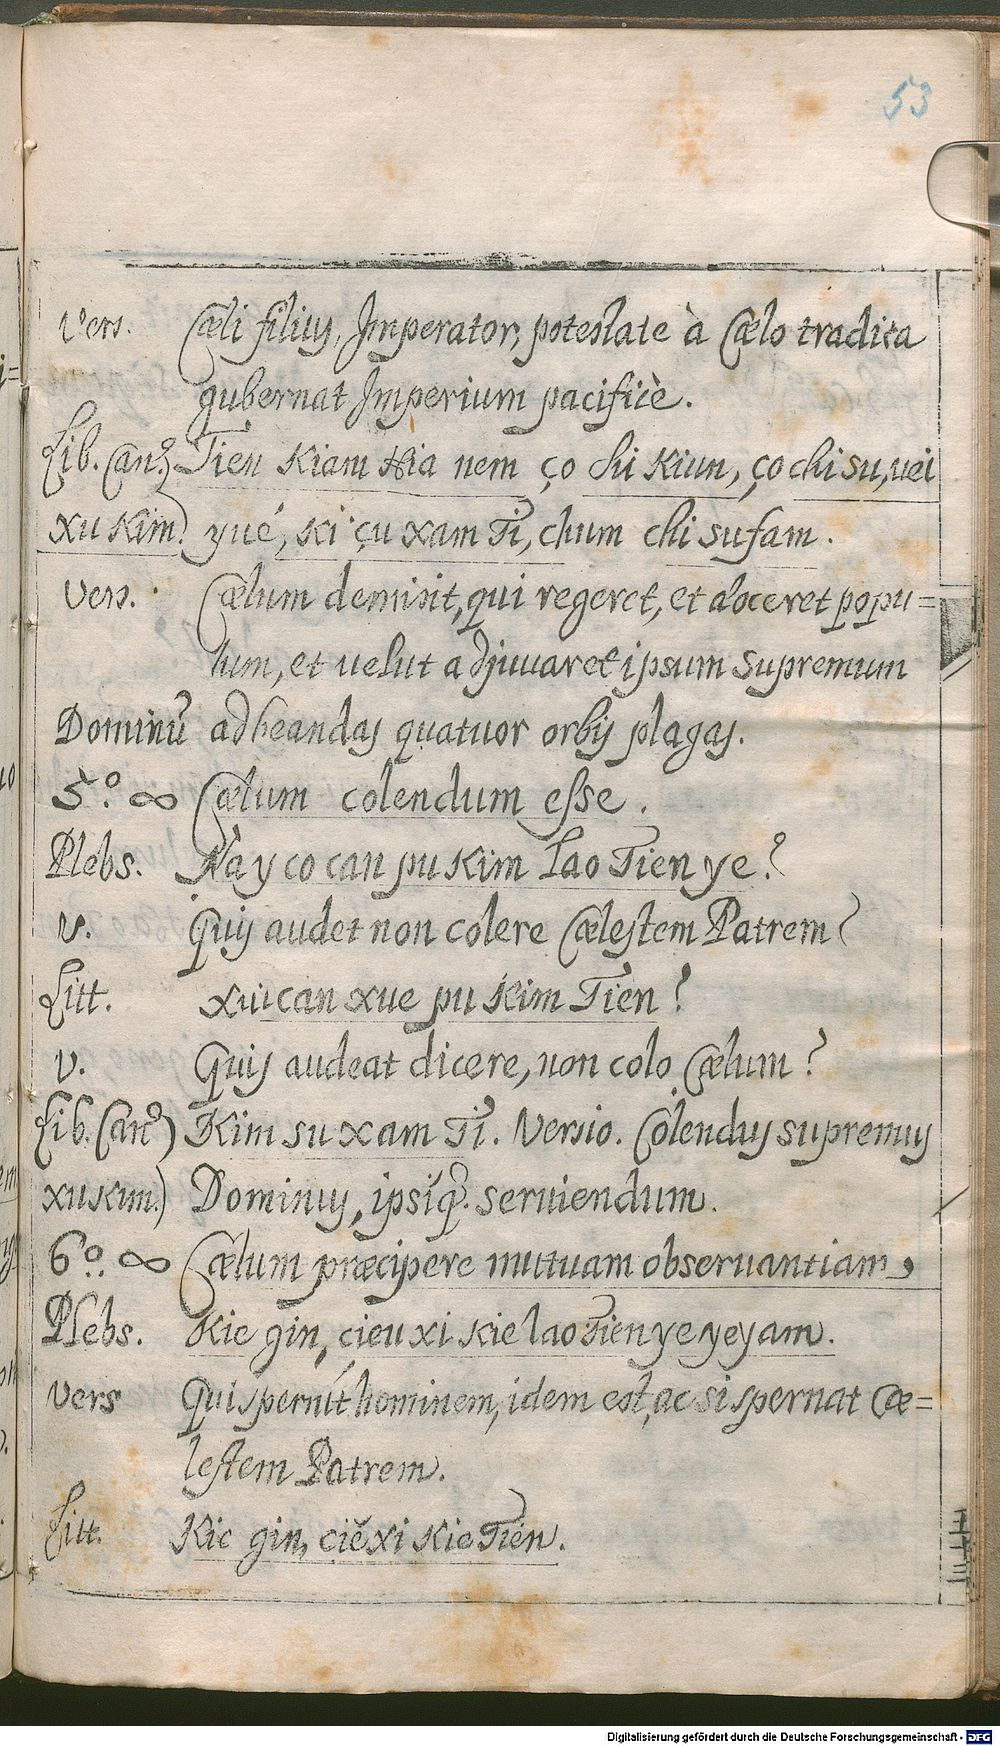 53
Vers. Cæli filius, Imperator, potestate à Cælo tradita
gubernat Imperium pacificè.
Lib. Can.) Tien Kiam Hia nem ço chi Kiun, ço chi su, uei
xu Kim.) yué, Ki çu xam Ti, chum chi su fam.
Vers. Cælum demisit, qui regeret, et doceret popu=
lum, et velut adjuuaret ipsum supremum
Dominũ ad beandas quatuor orbis plagas.
5.º ∞ Cælum colendum esse.
Plebs. Na y co can pu Kim Lao Tien ye?
v. Quis audet non colere Cælestem Patrem?
Litt. Xui can xue pu Kim Tien?
v. Quis audeat dicere, non colo Cælum?
Lib. Canº) Kim su xam Ti. Versio. Colendus supremus
xu Kim.) Dominus, ipsiq. seruiendum.
6º. ∞ Cælum præcipere mutuam obseruantiam,
Plebs. Kie gin, cieu xi Kie lao Tien ye ye yam.
Vers Qui spernit hominem, idem est, ac si spernat Cæ=
lestem Patrem.
Litt. Kie gin, ciĕ xi Kie Tien.
Digitalisierung gefördert durch die Deutsche Forschungsgemeinschaft - DFG